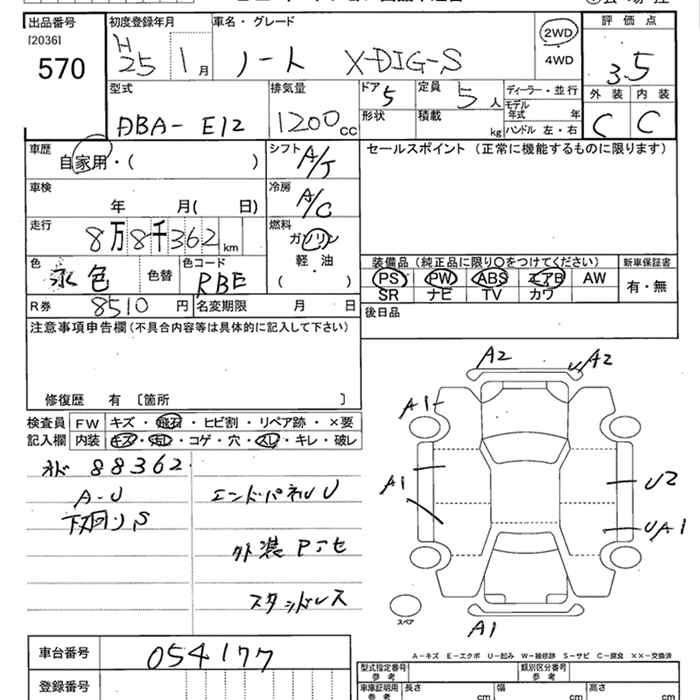 出品番号 初度登録年月 車名・グレード 評価点
[2036]
570
H25 1月 ノート X-DIG-S 2WD 4WD 3.5
外装 内装
C C
型式 DBA-E12
排気量 1200cc
ドア 5 定員 5人
形状 積載 kg
ディーラー・並行
モデル年式 年
ハンドル 左・右
車歴 自家用・( )
シフト A/T
セールスポイント (正常に機能するものに限ります)
車検 年 月( 日)
冷房 A/C
走行 8万8千362km
燃料 ガソリン
軽・油
( )
色 水色 色替 色コード RBE
装備品(純正品に限り○をつけてください) 新車保証書
PS PW ABS エアB AW 有・無
SR ナビ TV カワ
R券 8510円 名変期限 月 日
後日品
注意事項申告欄(不具合内容等は具体的に記入して下さい)
修復歴 有 〔箇所 〕
検査員記入欄
FW キズ・飛石・ヒビ割・リペア跡・×要
内装 キズ・汚レ・コゲ・穴・スレ・キレ・破レ
88362
A-U エンドパネルU
下廻りS
外装
スタッドレス
A2 A2
A1
A1 U2
UA1
スペア
A1
A-キズ E-エクボ U-凹み W-補修跡 S-サビ C-腐食 ××-交換済
車台番号 054177
登録番号
型式指定番号 参考 類別区分番号 参考
車庫証明用 参考 長さ cm 幅 cm 高さ cm